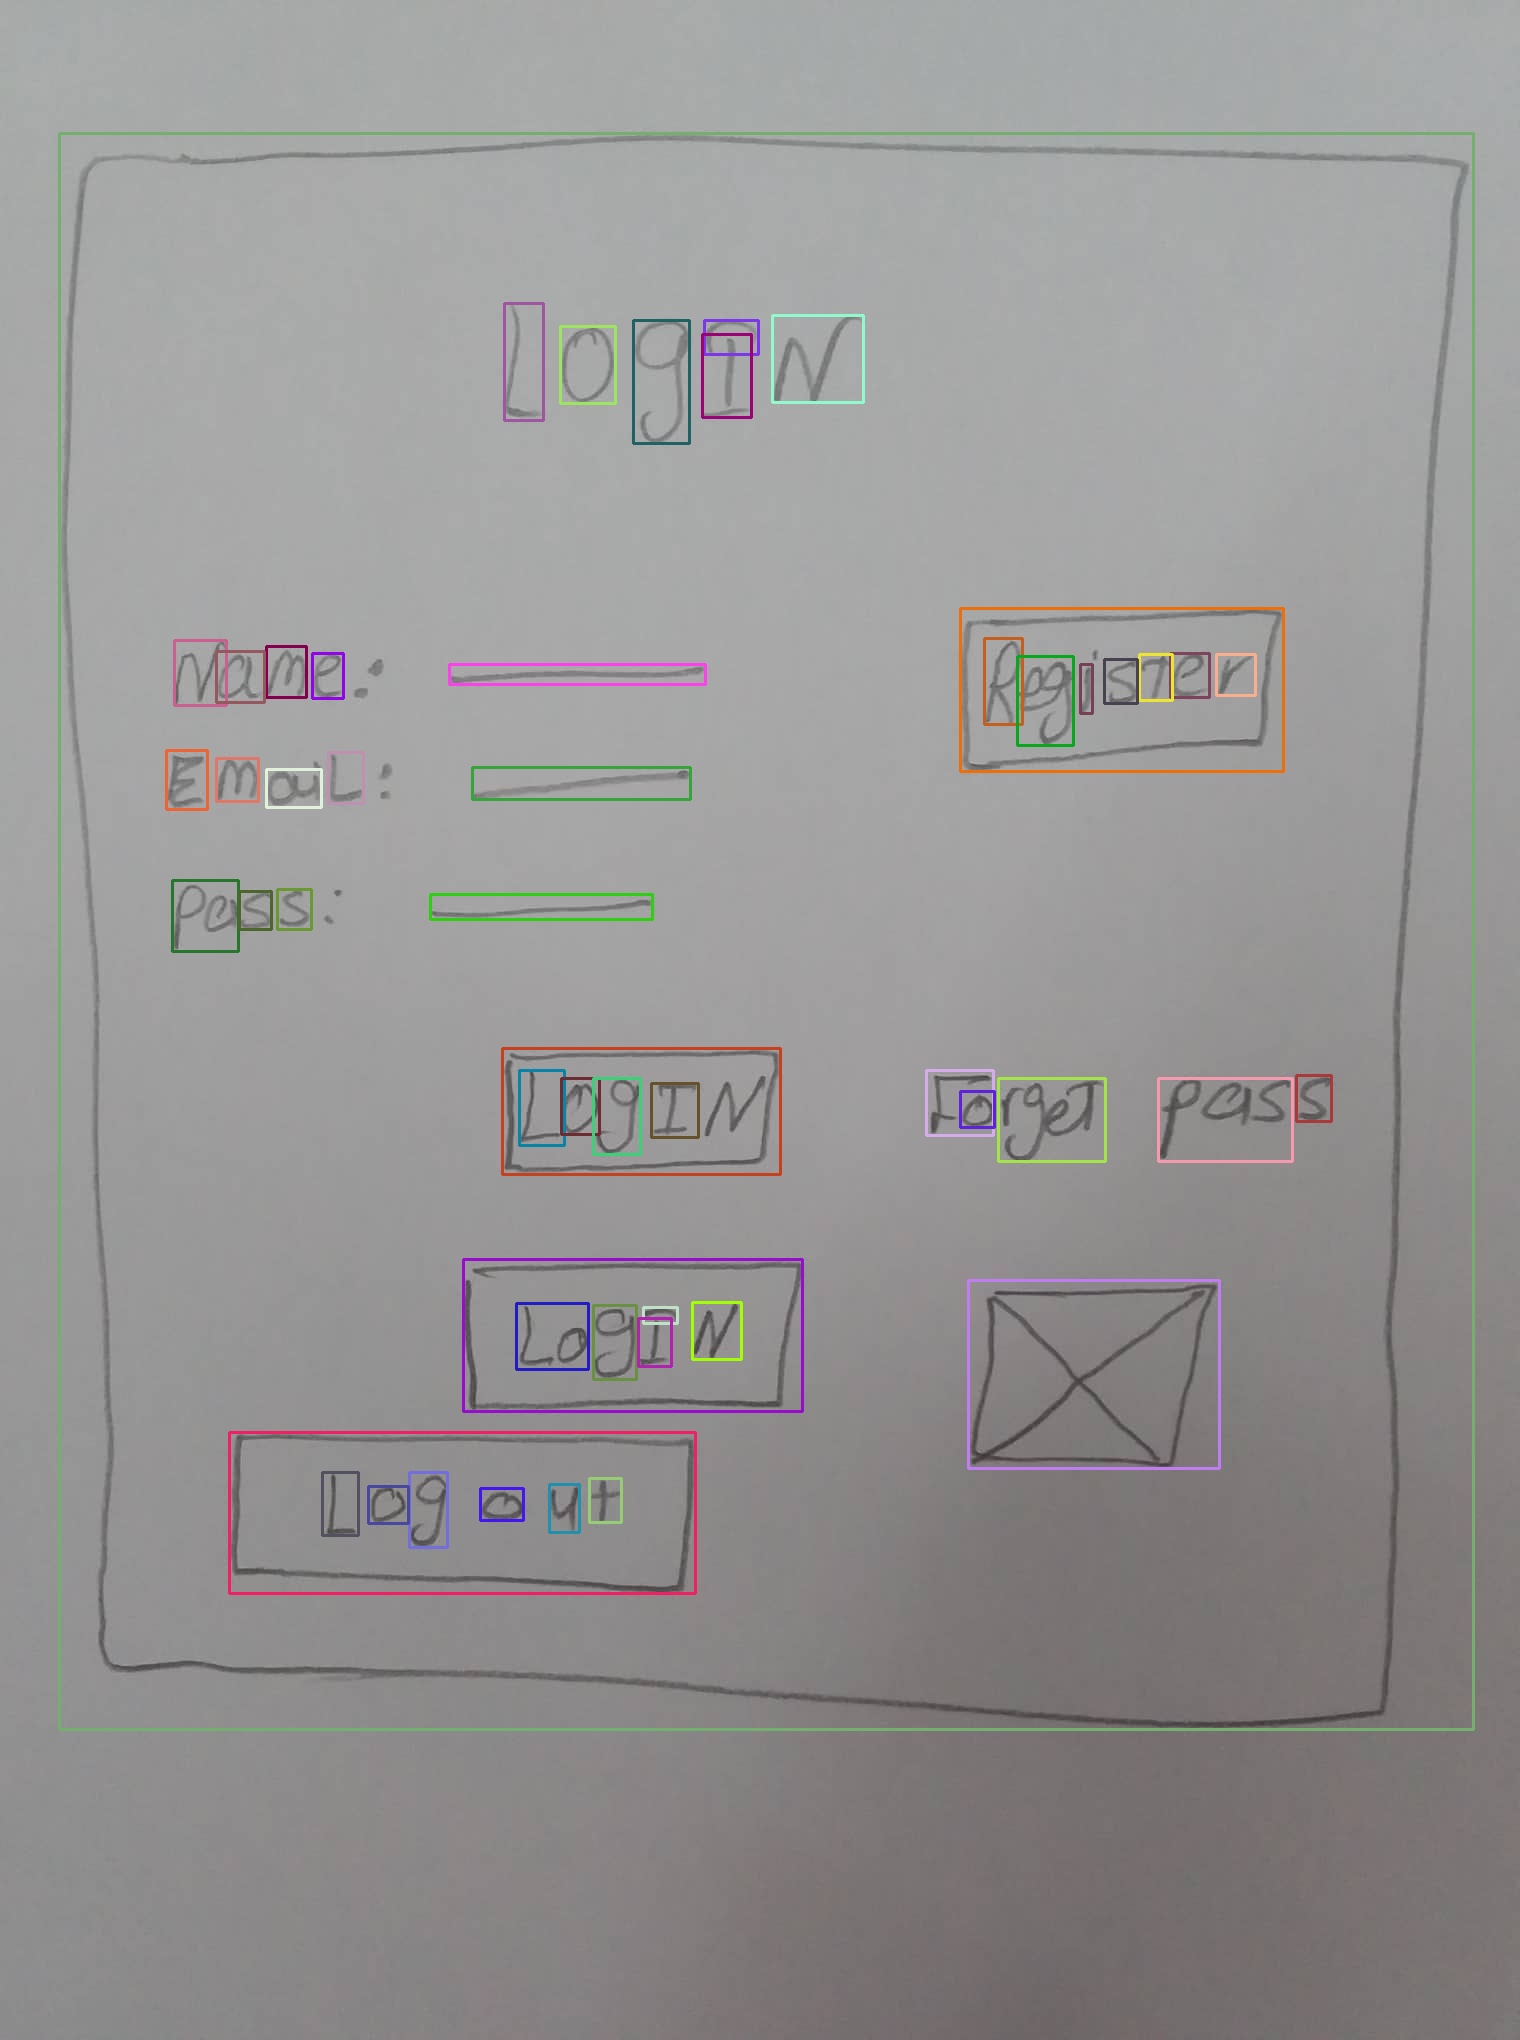 LOgIN
Name:
Register
EmaiL:
Pass:
LogIN
Forget pass
LogIN
Log out